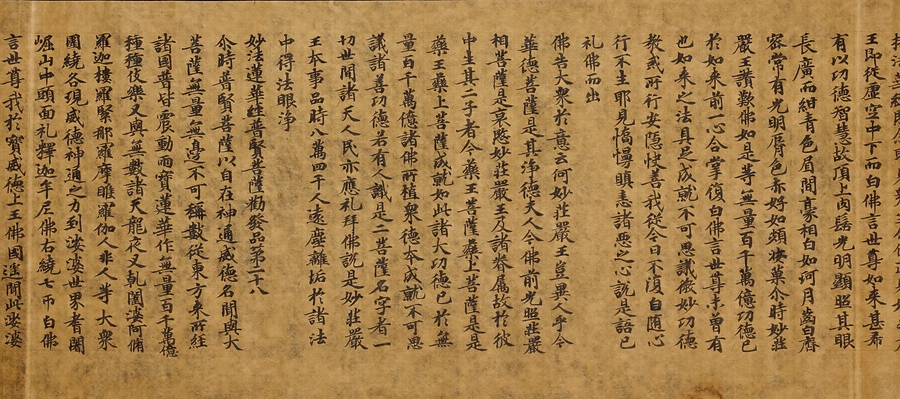 王即從虛空中下而白佛言世尊如來甚希
有以功德智慧故頂上肉髻光明顯照其眼
長廣而紺青色眉間豪相白如珂月齒白齊
密常有光明脣色赤好如頻婆菓尒時妙莊
嚴王讚歎佛如是等無量百千萬億功德已
於如來前一心合掌復白佛言世尊未曾有
也如來之法具足成就不可思議微妙功德
教戒所行安隱快善我從今日不復自隨心
行不生耶見憍慢瞋恚諸惡之心說是語已
礼佛而出
佛告大衆於意云何妙莊嚴王豈異人乎今
華德菩薩是其淨德夫人今佛前光照莊嚴
相菩薩是哀愍妙莊嚴王及諸眷屬故於彼
中生其二子者今藥王菩薩藥上菩薩是是
藥王藥上菩薩成就如此諸大功德已於無
量百千萬億諸佛所植衆德本成就不可思
議諸善功德若有人識是二菩薩名字者一
切世間諸天人民亦應礼拜佛說是妙莊嚴
王本事品時八萬四千人遠塵離垢於諸法
中得法眼淨
妙法蓮華經普賢菩薩勸發品第二十八
尒時普賢菩薩以自在神通威德名聞與大
菩薩無量無邊不可稱數從東方來所經
諸國普皆震動而寶蓮華作無量百千萬億
種種伎樂又與無數諸天龍夜叉乹闥婆阿脩
羅迦樓羅緊那羅摩睺羅伽人非人等大衆
圍繞各現威德神通之力到娑婆世界耆闍
崛山中頭面礼釋迦牟尼佛右繞七帀白佛
言世尊我於寶威德上王佛國遥聞此娑婆